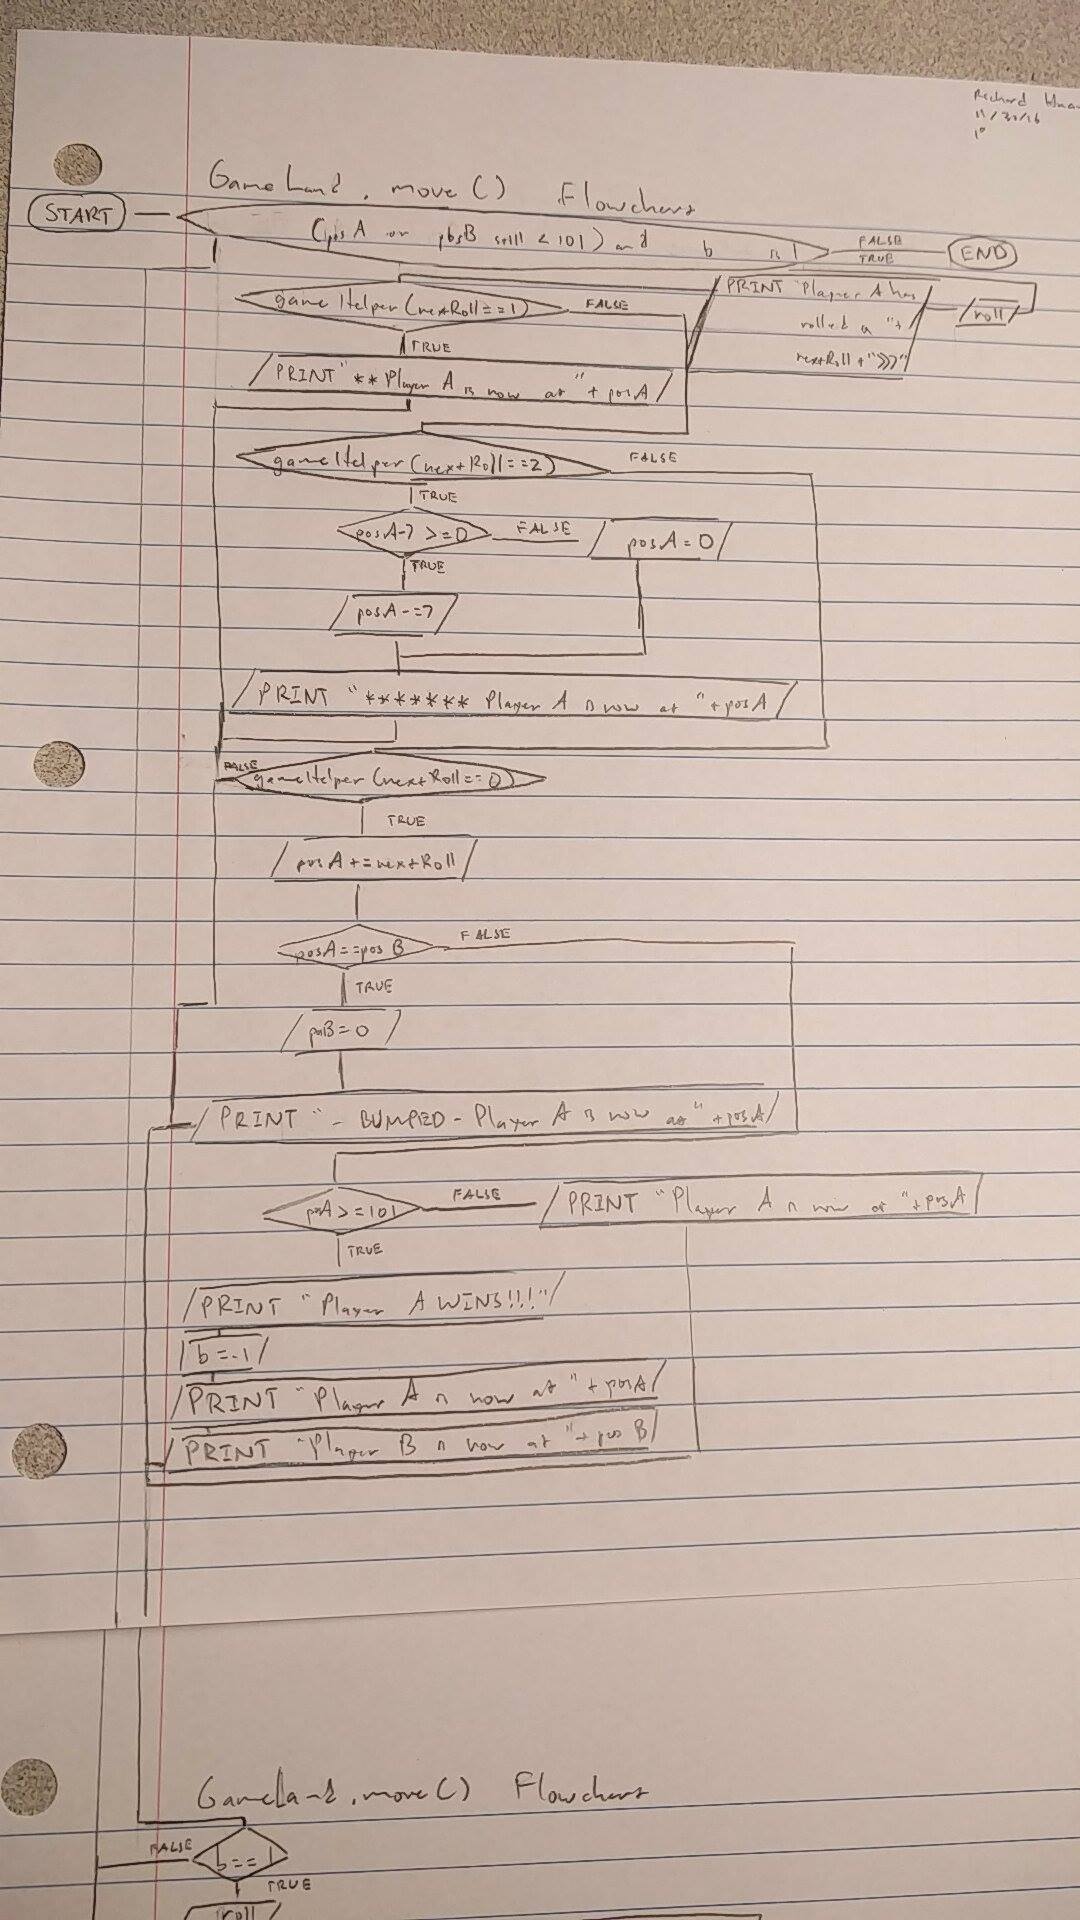 Richard
11/30/16
1°
GameLand.move() Flowchart
START
(posA or posB still < 101) and b is 1
FALSE
TRUE
END
gameHelper(nextRoll==1)
FALSE
PRINT "Player A has
rolled a "+
nextRoll+">>>"
roll
TRUE
PRINT "**Player A is now at "+posA
gameHelper(nextRoll==2)
FALSE
TRUE
posA-7 >=0
FALSE
posA=0
TRUE
posA-=7
PRINT "******* Player A is now at "+posA
FALSE
gameHelper(nextRoll==0)
TRUE
posA+=nextRoll
posA==posB
FALSE
TRUE
posB=0
PRINT "-BUMPED-Player A is now at "+posA
posA>=101
FALSE
PRINT "Player A is now at "+posA
TRUE
PRINT "Player A WINS!!!"
b=-1
PRINT "Player A is now at "+posA
PRINT "Player B is now at "+posB
GameLand.move() Flowchart
FALSE
b==1
TRUE
roll